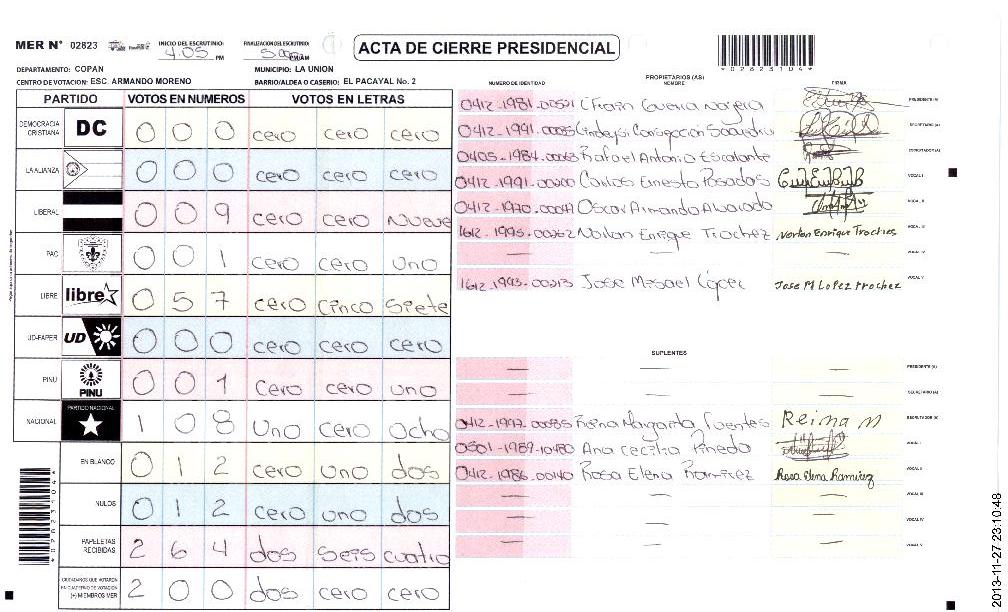 MER N° 02823
INICIO DEL ESCRUTINIO: 4:05 PM
FINALIZACION DEL ESCRUTINIO: PM/AM
ACTA DE CIERRE PRESIDENCIAL
*02823104*
DEPARTAMENTO: COPAN
MUNICIPIO: LA UNION
CENTRO DE VOTACION: ESC. ARMANDO MORENO
BARRIO/ALDEA O CASERIO: EL PACAYAL No. 2
PARTIDO VOTOS EN NUMEROS VOTOS EN LETRAS
DEMOCRACIA CRISTIANA DC 0 0 0 cero cero cero
LA ALIANZA 0 0 0 cero cero cero
LIBERAL 0 0 9 cero cero Nueve
PAC 0 0 1 cero cero uno
LIBRE libre 0 5 7 cero cinco siete
UD-FAPER UD 0 0 0 cero cero cero
PINU PINU 0 0 1 cero cero uno
NACIONAL PARTIDO NACIONAL 1 0 8 Uno cero Ocho
EN BLANCO 0 1 2 cero uno dos
NULOS 0 1 2 cero uno dos
PAPELETAS RECIBIDAS 2 6 4 dos seis cuatro
CIUDADANOS QUE VOTARON EN CUADERNO DE VOTACION (+) MIEMBROS MER 2 0 0 dos cero cero
*02823104*
PROPIETARIOS (AS)
NUMERO DE IDENTIDAD NOMBRE FIRMA
0412-1981-00521 Guerra Najera PRESIDENTE (A)
0412-1991-00085 SECRETARIO (A)
0405-1984-00063 Rafael Antonio Escalante ESCRUTADOR (A)
0412-1991-00200 Carlos Ernesto Posadas VOCAL I
0412-1970-00041 Oscar Armando Alvarado VOCAL II
1612-1995-00262 Norlan Enrique Trochez Norlan Enrique Troches VOCAL III
— — — VOCAL IV
1612-1993-00213 Jose Misael López Jose M Lopez trochez VOCAL V
SUPLENTES
— — — PRESIDENTE (A)
— — — SECRETARIO (A)
0412-1997-00085 Reina Margarita Fuentes Reina M ESCRUTADOR (A)
0501-1989-10480 Ana cecilia Pinedo VOCAL I
0412-1986-00140 Rosa Elena Ramirez Rosa Elena Ramirez VOCAL II
— — — VOCAL III
— — — VOCAL IV
— — — VOCAL V
2013-11-27 23:10:48